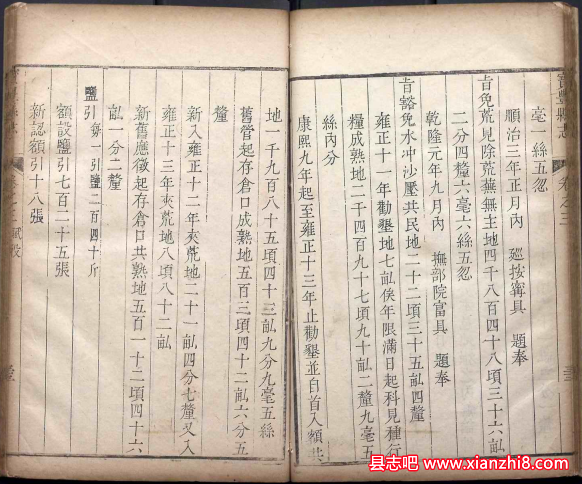 寶豐縣志
卷之三
毫一絲五忽
順治三年正月內 巡按寗具 題奉
旨免荒見除荒蕪無主地四千八百四十八頃三十六畝
二分四釐六毫六絲五忽
乾隆元年九月內 撫部院富具 題奉
旨豁免水冲沙壓共民地二十二頃三十五畝四釐
雍正十一年勸墾地七畝俟年限滿日起科見種行
糧成熟地二千四百九十七頃九十畝二釐九毫五
絲內分
康熙九年起至雍正十三年止勸墾並自首入額共
地一千九百八十五頃四十三畝九分九毫五絲
舊管起存倉口成熟地五百三頃四十二畝六分五
釐
新入雍正十二年夾荒地二十一畝四分七釐又入
雍正十三年夾荒地八頃八十二畝
新舊應徵起存倉口共熟地五百一十二頃四十六
畝一分二釐
鹽引 每一引鹽二百四十斤
額設鹽引七百二十五張
新認額引十八張
賦役
县志吧 www.xianzhi8.com